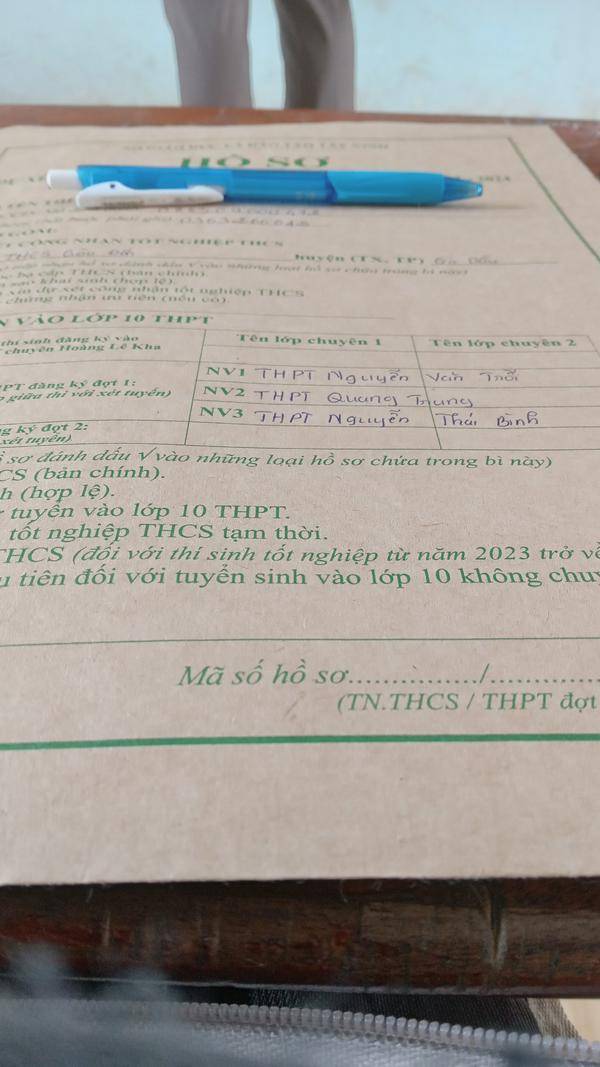 HỒ SƠ
2024
CÔNG NHẬN TỐT NGHIỆP THCS
THCS huyện (TX, TP) Gò Dầu
cấp THCS (bản chính).
sao khai sinh (hợp lệ).
xin dự xét công nhận tốt nghiệp THCS
chứng nhận ưu tiên (nếu có).
VÀO LỚP 10 THPT
thí sinh đăng ký vào
chuyên Hoàng Lê Kha
Tên lớp chuyên 1
Tên lớp chuyên 2
đăng ký đợt 1:
giữa thi với xét tuyển)
NV1 THPT Nguyễn Văn Trỗi
NV2 THPT Quang Trung
NV3 THPT Nguyễn Thái Bình
ký đợt 2:
xét tuyển)
sơ đánh dấu √ vào những loại hồ sơ chứa trong bì này)
CS (bản chính).
h (hợp lệ).
tuyển vào lớp 10 THPT.
tốt nghiệp THCS tạm thời.
THCS (đối với thí sinh tốt nghiệp từ năm 2023 trở về
u tiên đối với tuyển sinh vào lớp 10 không chuy
Mã số hồ sơ............../..............
(TN.THCS / THPT đợt